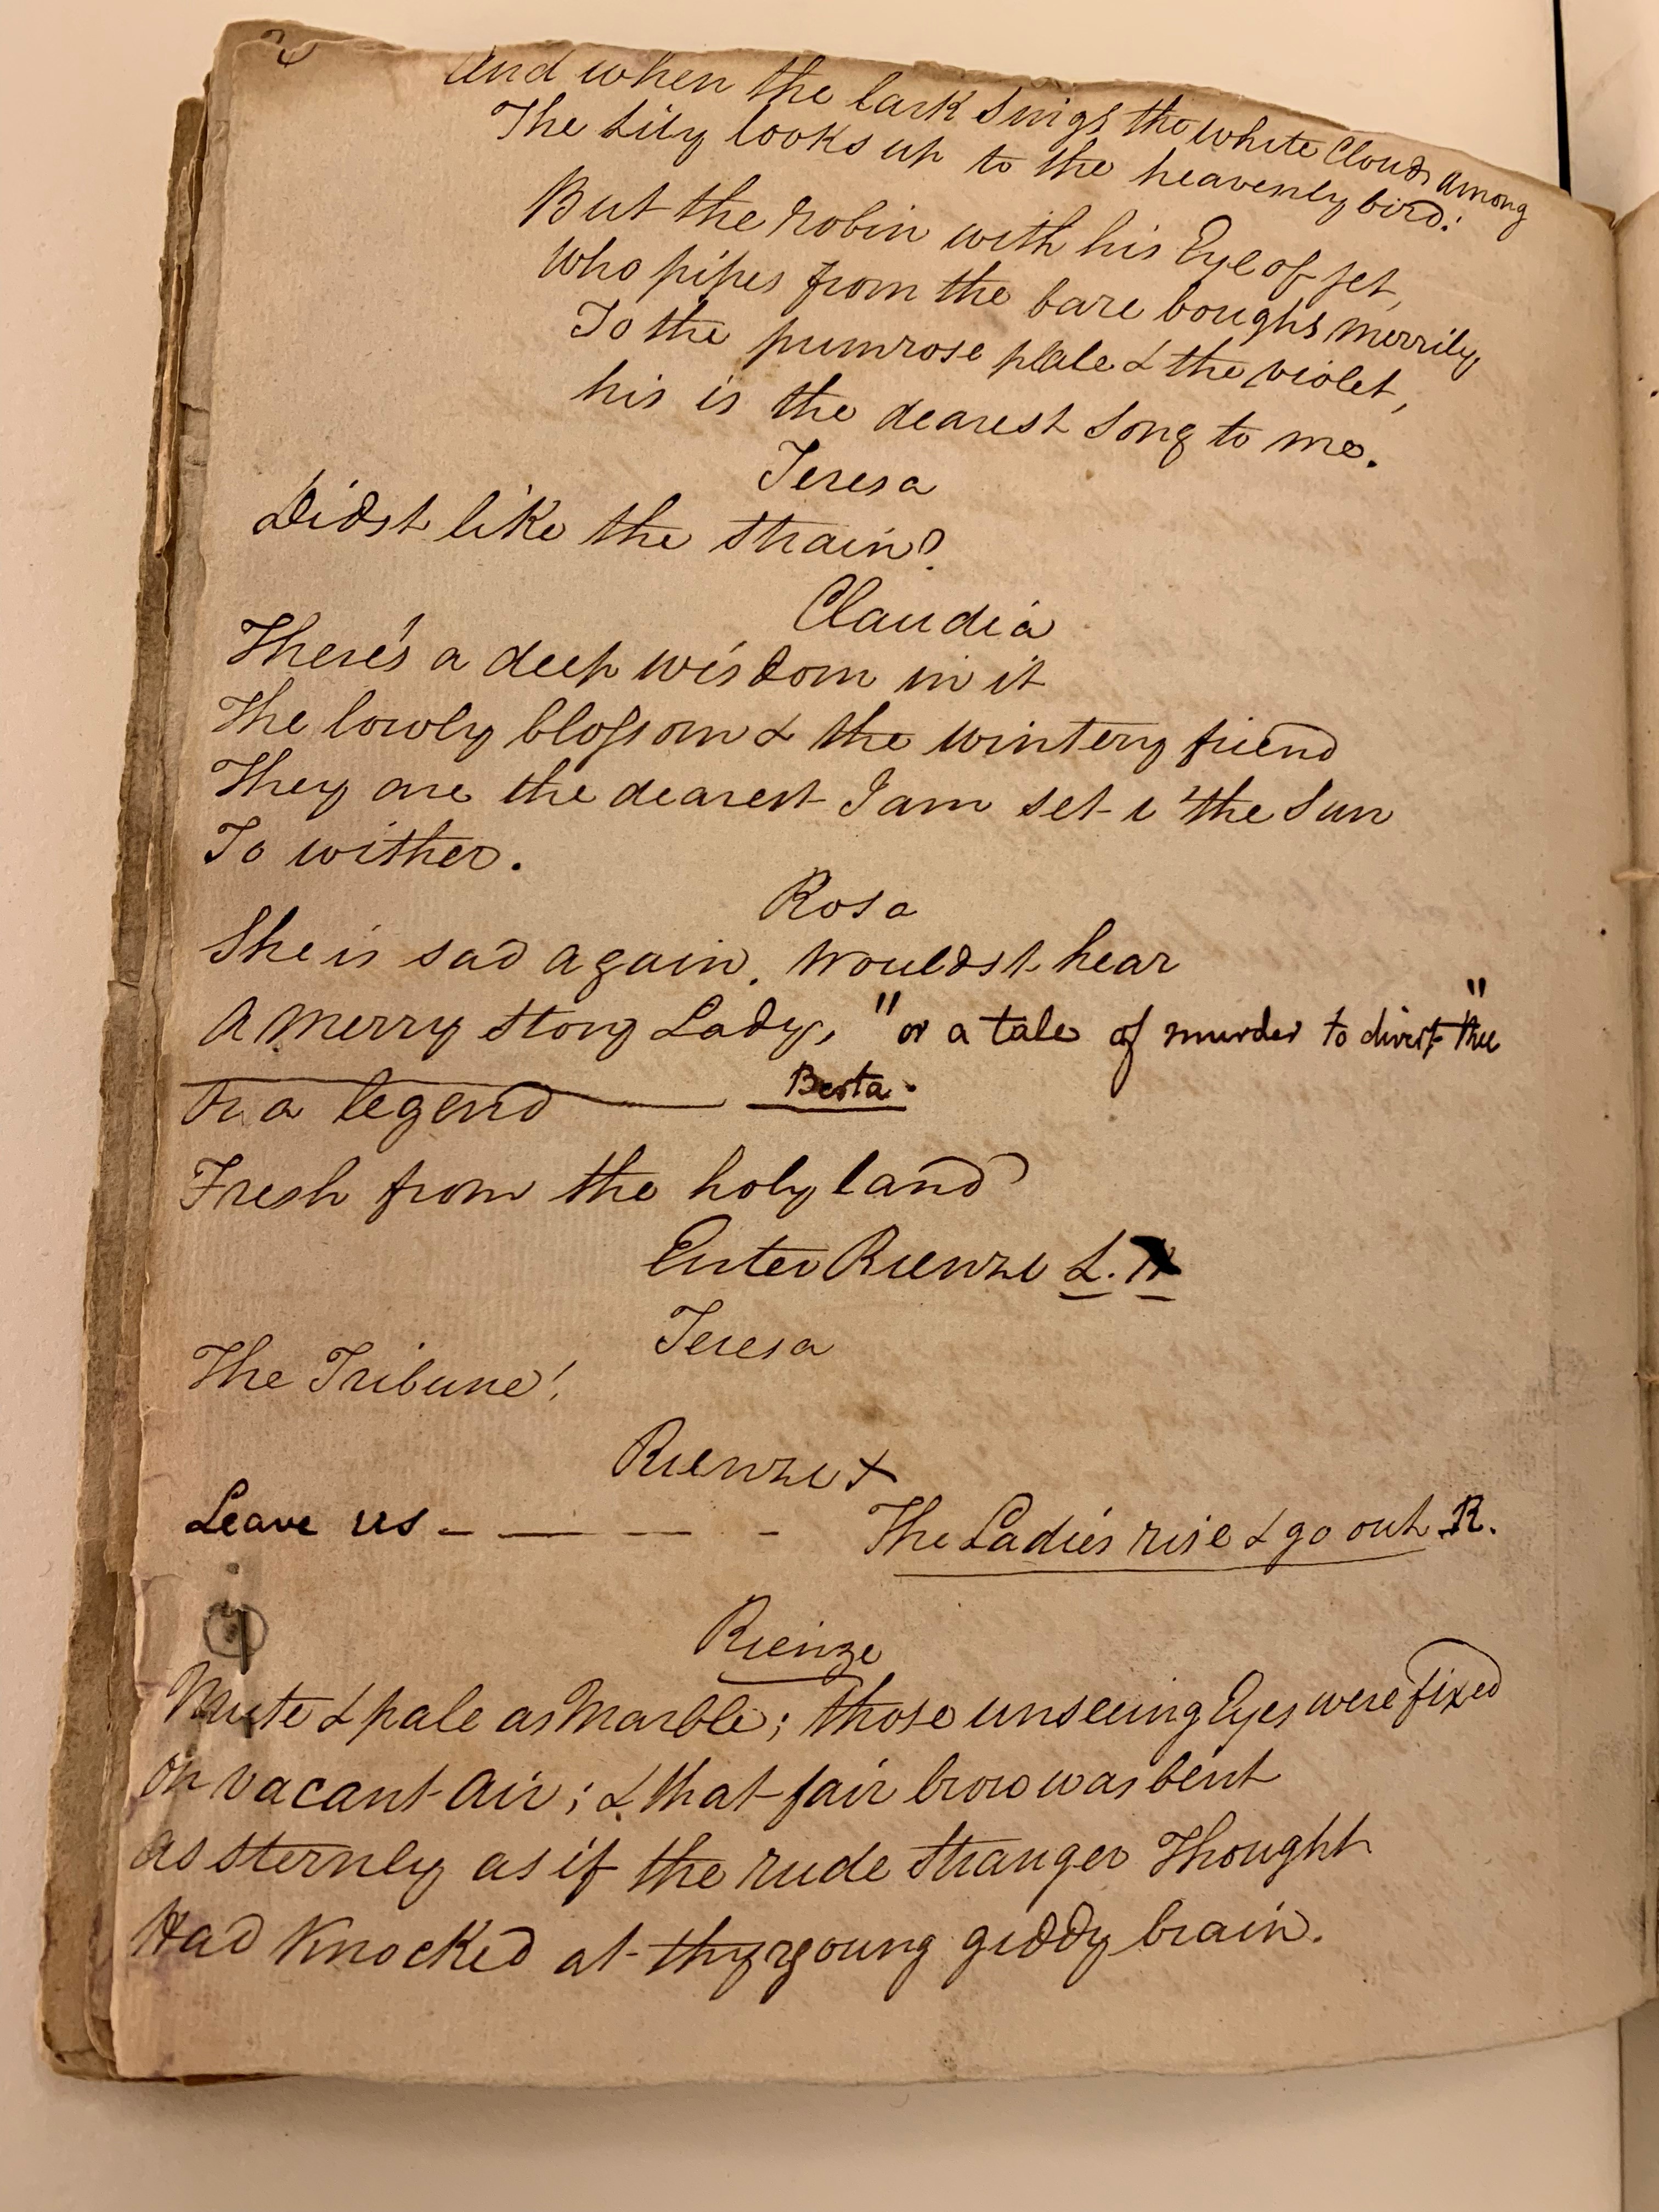 And when the lark sings the white Clouds among
The Lily looks up to the heavenly bird:
But the robin with his Eye of jet,
Who pipes from the bare boughs merrily
To the primrose pale & the violet,
his is the dearest Song to me.
Teresa
Didst like the strain?
Claudia
There's a deep wisdom in it
The lowly blossom & the wintery friend
They are the dearest I am set i 'the Sun
To wither.
Rosa
She is sad again. Wouldst hear
A merry story Lady, "or a tale of murder to divert thee"
Or a legend Berta.
Fresh from the holy land
Enter Rienzi L.
Teresa
The Tribune!
Rienzi X
Leave us - — — - The Ladies rise & go out R.
Rienze
Mute & pale as Marble; those unseeing Eyes were fixed
On vacant Air; & that fair brow was bent
As sternly as if the rude stranger Thought
Had Knocked at thy young giddy brain.